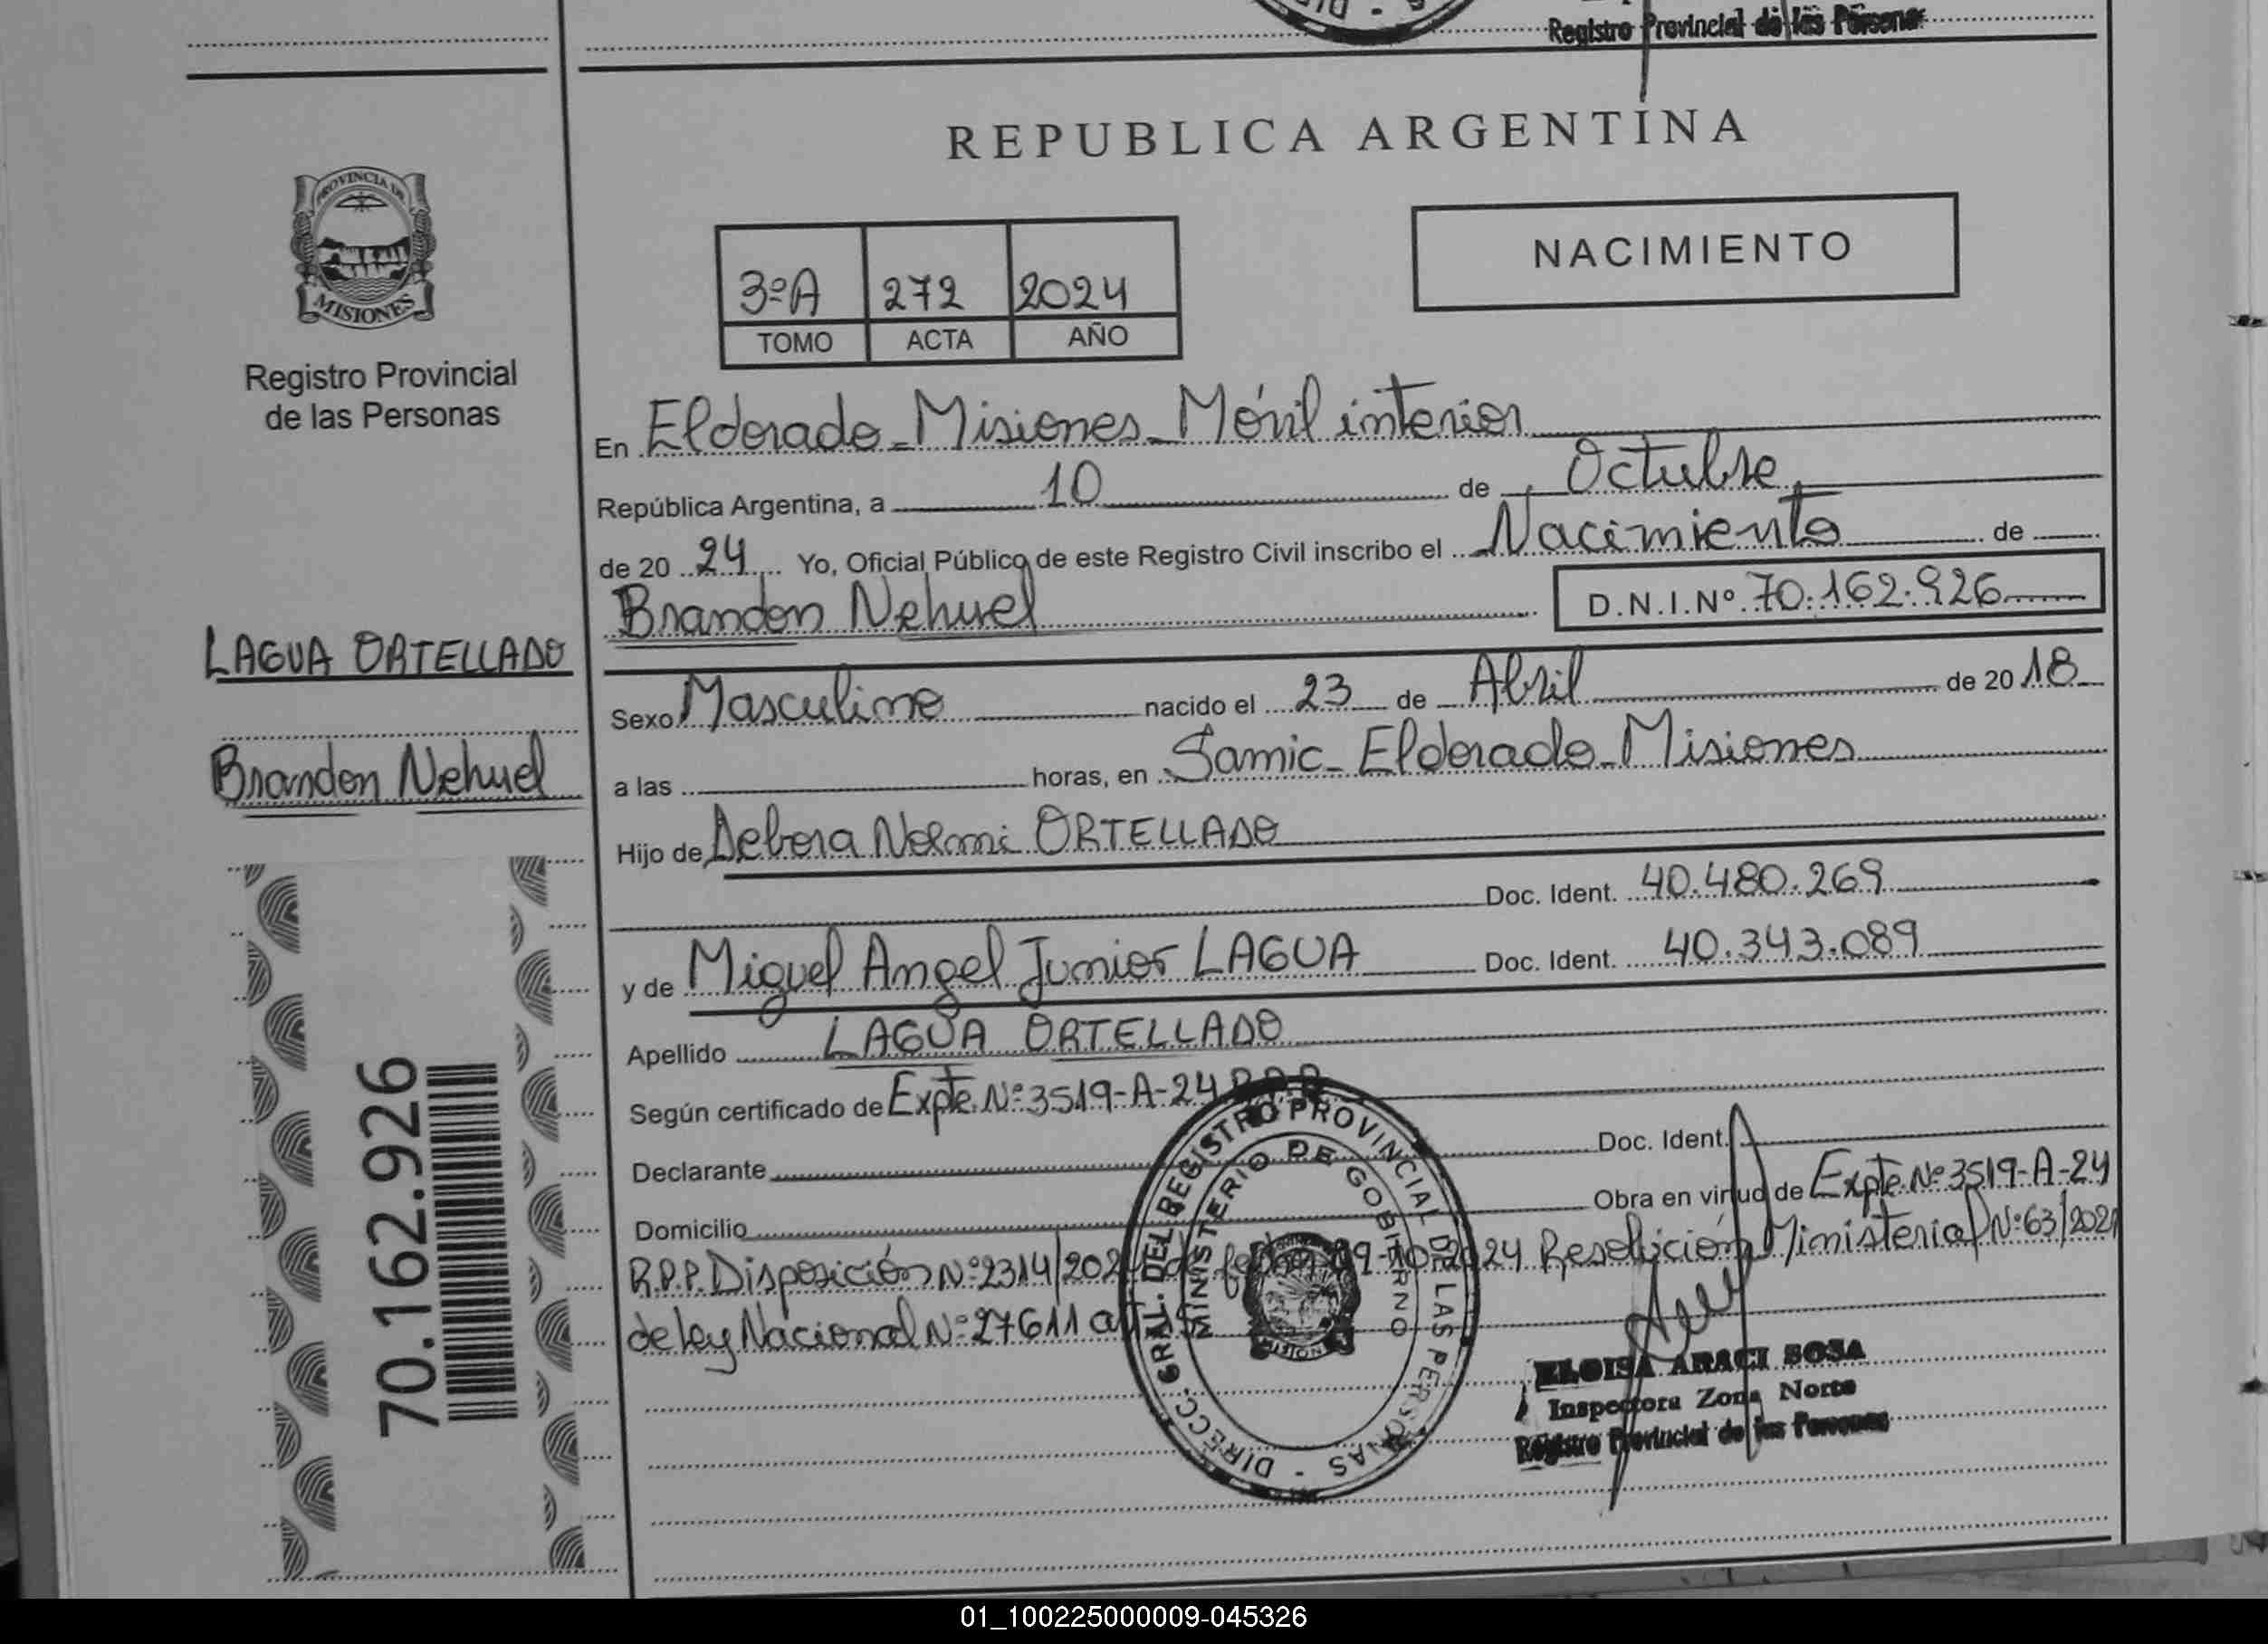 Registro Provincial de las Personas
REPUBLICA ARGENTINA
PROVINCIA DE
MISIONES
Registro Provincial
de las Personas
3ºA 272 2024
TOMO ACTA AÑO
NACIMIENTO
En Eldorado - Misiones - Móvil interior
República Argentina, a 10 de Octubre
de 20 24 Yo, Oficial Público de este Registro Civil inscribo el Nacimiento de
Brandon Nehuel D.N.I.Nº 70.162.926
LAGUA ORTELLADO
Brandon Nehuel
Sexo Masculino nacido el 23 de Abril de 20 18
a las horas, en Samic - Eldorado - Misiones
Hijo de Debora Noemi ORTELLADO
Doc. Ident. 40.480.269
y de Miguel Angel Junior LAGUA Doc. Ident. 40.343.089
Apellido LAGUA ORTELLADO
Según certificado de Expte. Nº 3519-A-24 R.P.P.
Declarante Doc. Ident.
Domicilio Obra en virtud de Expte Nº 3519-A-24
R.P.P. Disposición Nº 2314/2024 de fecha 09-10-2024 Resolución Ministerial Nº 63/2021
de Ley Nacional Nº 27611
70.162.926
DIRECC. GRAL. DEL REGISTRO PROVINCIAL DE LAS PERSONAS -
MINISTERIO DE GOBIERNO
MISIONES
ELOISA ARACI SOSA
Inspectora Zona Norte
Registro Provincial de las Personas
01_100225000009-045326